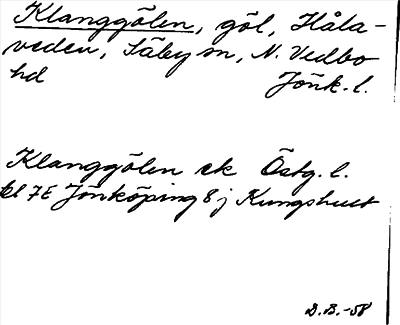 Klanggölen, göl, Håla-
veden, Säby sn, N. Vedbo
hd Jönk. l.
Klanggölen ek Östg. l.
bl 7E Jönköping 8 j Kungshult
D.B.-58